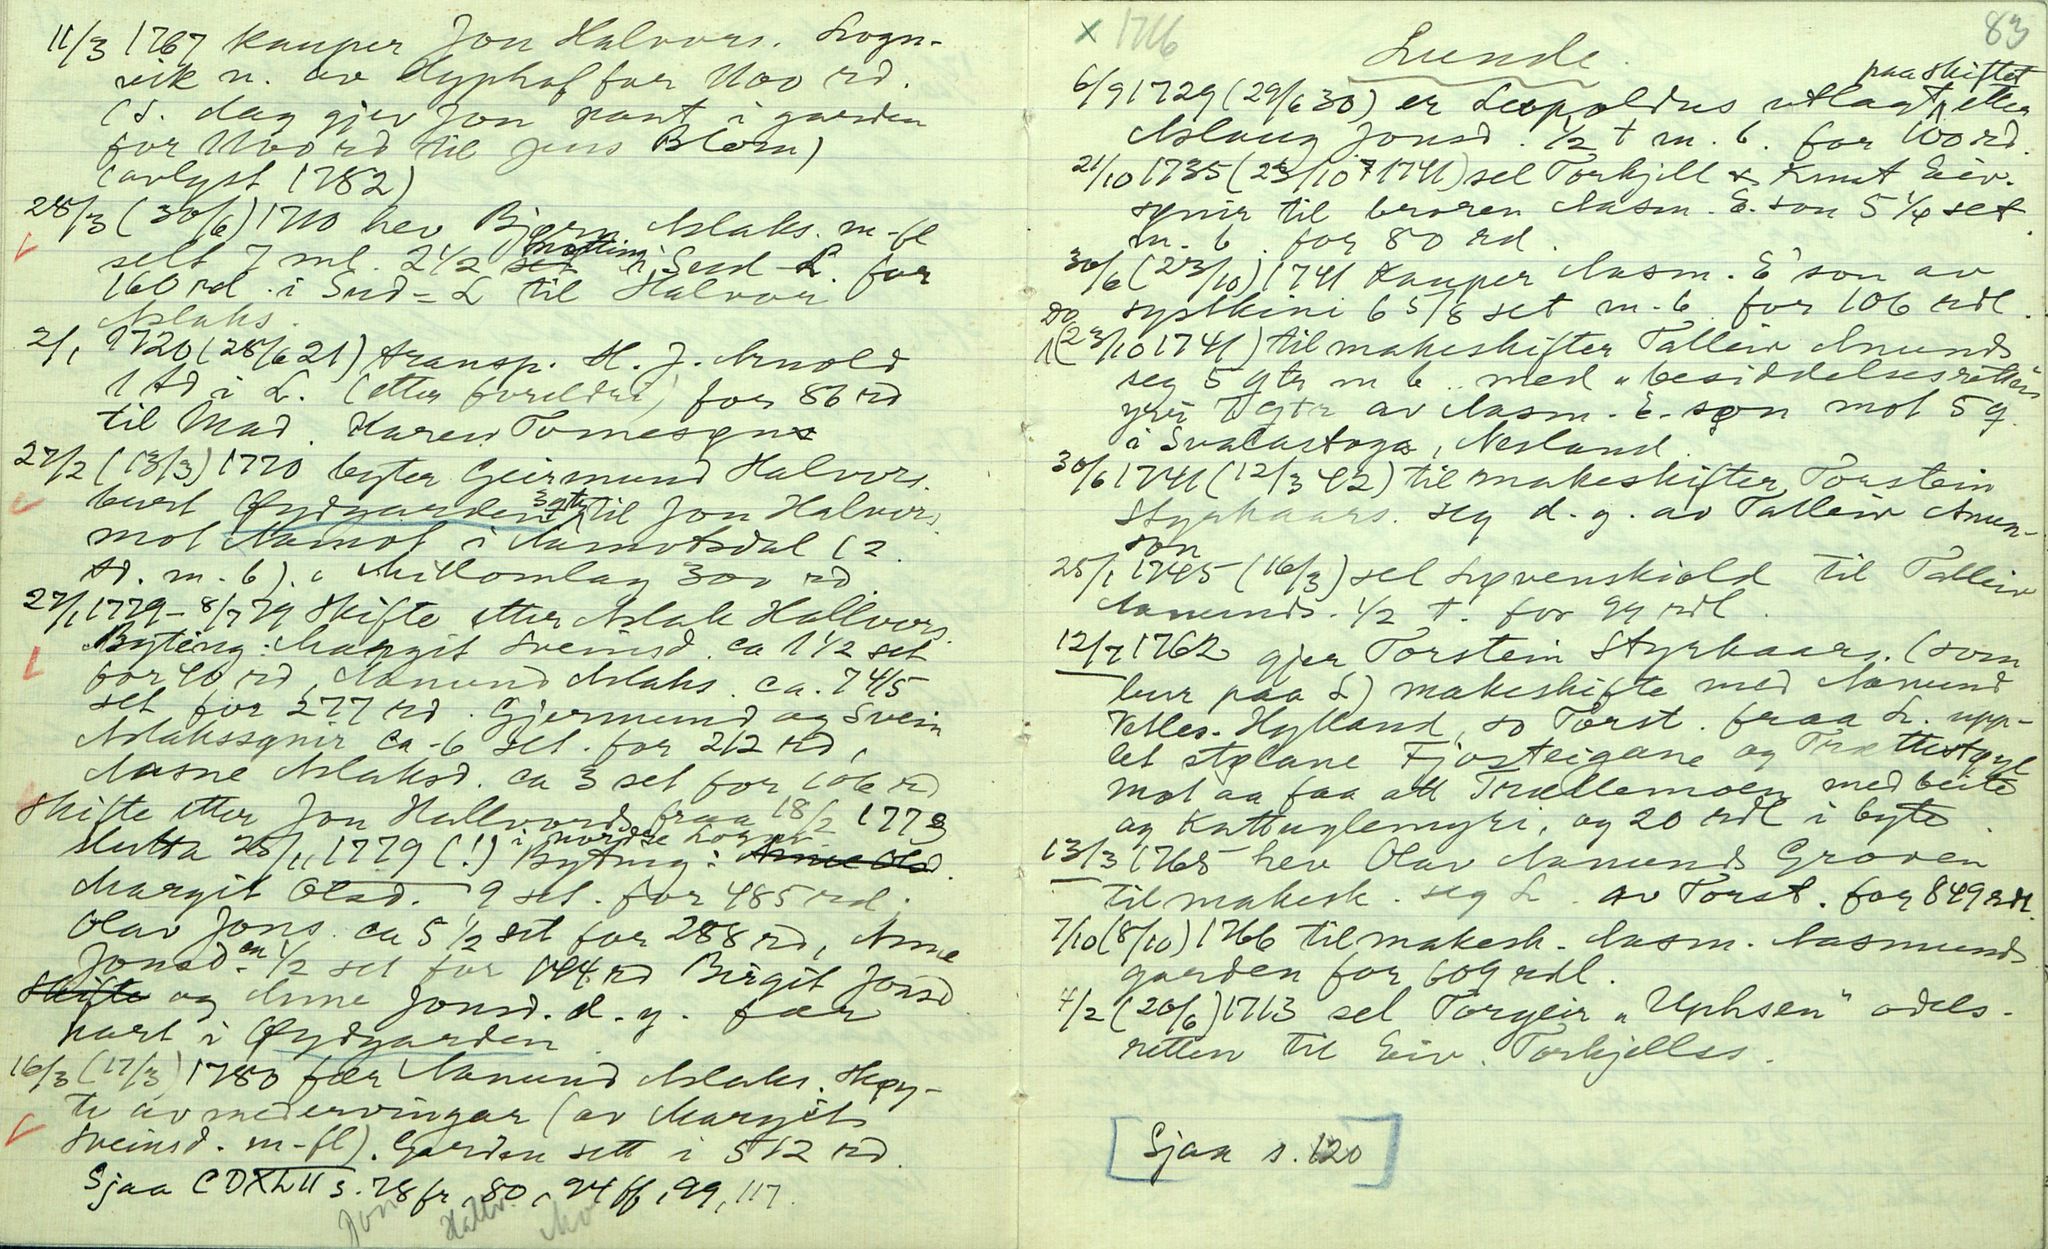 11/3 1767 kauper Jon Halvors. Logn-
vik n. av Hyphof for 1100 rd.
(s. dag gjev Jon pant i garden
for 1100 rd til Jens Blom)
(avlyst 1782)
28/3 (30/6) 1710 hev Bjørn Aslaks. m-fl
selt 7 ml. 2 1/2 set i Sud-L. for
160 rd. i Sud-L til Halvor
Aslaks.
2/1 1720 (28/6 21) transp. H. J. Arnold
1 td i L. (etter foreldre) for 86 rd
til Mad. Karen Tomesøns
27/2 (13/3) 1770 byter Geirmund Halvors.
burt Øydgarden 3 gtr til Jon Halvors
mot Aamot i Aamotsdal (2
td. m. b). i Millomlag 300 rd
27/1 1779 - 8/7 79 Skifte etter Aslak Hallvors.
Byting: Margit Sveinsd. ca 1 1/2 set
for 40 rd, Aamund Aslaks. ca. 7 4/5
set for 277 rd. Gjermund og Svein
Aslakssønir ca. 6 set. for 212 rd,
Aasne Aslaksd. ca 3 set for 106 rd
Skifte etter Jon Hallvords. fraa 18/2 1773
slutta 25/11 1779 (!) i nordre Lognv. Byting: Anne Olsd.
Margit Olsd. 9 set. for 485 rd.
Olav Jons. ca 5 1/2 set for 288 rd, Anne
Jonsd. ca 1/2 set for 144 rd Birgit Jonsd
Skifte og Anne Jonsd. d. y. fær
part i Øydgarden
16/3 (17/3) 1780 fær Aamund Aslaks. skøy-
te av medervingar (av Margit
Sveinsd. m-fl). Garden sett i 512 rd.
Sjaa CDXLII s. 78 fr, 80, 94 ff, 99, 117.
Jon Hallv.
x 1716
83
Lunde.
6/9 1729 (29/6 30) er Leopoldus utlagt paa skiftet etter
Aslaug Jonsd. 1/2 t m. b. for 100 rd.
21/10 1735 (23/10 1741) sel Torkjell & Knut Eiv.
synir til broren Aasm. E. son 5 1/4 set
m. b. for 80 rd.
30/6 (23/10) 1741 kauper Aasm. E' son av
syskini 6 5/8 set m. b. for 106 rdl.
Do (23/10 1741) til makeskifter Talleiv Amunds
seg 5 gtr m b. med "besiddelsesretten"
yvir 7 gtr av Aasm. E. son mot 5 g.
i Svalastoga, Nesland.
30/6 1741 (12/3 42) til makeskifter Torstein
Styrkaars. seg d. g. av Talleiv Amun-
son
25/1 1745 (16/3) sel Løvenskiold til Talleiv
Aamunds. 1/2 t. for 99 rdl.
12/7 1762 gjer Torstein Styrkaars. (som
bur paa L) makeskifte med Aamund
Villes. Hylland, so Torst. fraa L. upp-
let stølane Fjosteigane og Trættestøyl
mot aa faa att Trællemoen med beite
og Kattuglemyri, og 20 rdl i byte.
13/3 1765 hev Olav Aamunds Groven
til makesk. seg L. av Torst. for 849 rdl.
7/10 (8/10) 1766 til makesk. Aasm. Aasmunds
garden for 609 rdl.
4/2 (20/6) 1713 sel Torgeir "Uphsen" odels-
retten til Eiv. Torkjells.
[Sjaa s. 120]